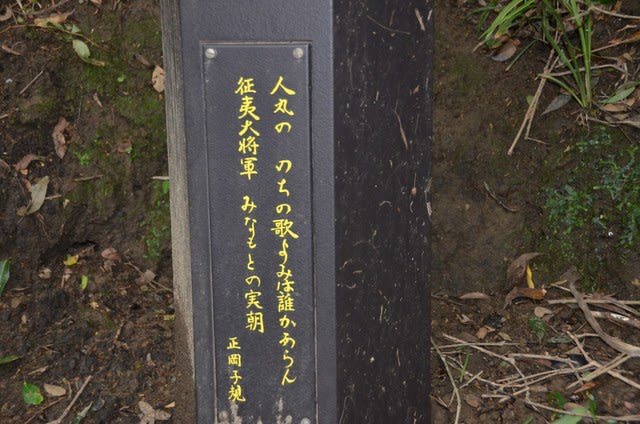 人丸の のちの歌よみは誰かあらん
征夷大将軍 みなもとの実朝
正岡子規